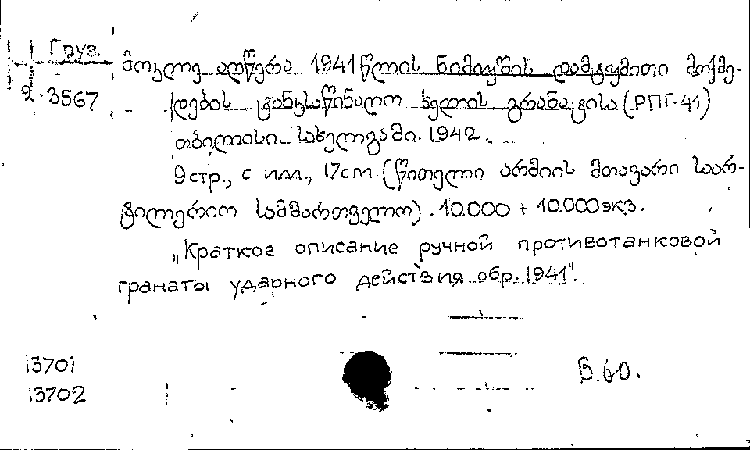 Груз.
2-3567
მოკლე აღწერა 1941 წლის ნიმუშის დამრტყმითი მოქმე-
დების ტანკსაწინაღო ხელის გრანატისა (РПГ-41)
თბილისი. სახელგამი. 1942.
9 стр., с илл., 17 cm. (წითელი არმიის მთავარი საარ-
ტილერიო სამმართველო). 10.000 + 10.000 экз.
"Краткое описание ручной противотанковой
гранаты ударного действия обр. 1941".
13701
13702
В.60.